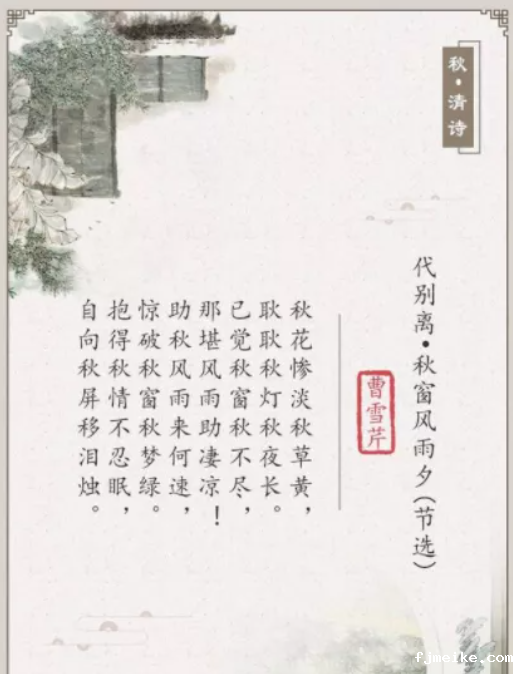 秋·清诗
代别离·秋窗风雨夕(节选)
曹雪芹
秋花惨淡秋草黄，
耿耿秋灯秋夜长。
已觉秋窗秋不尽，
那堪风雨助凄凉！
助秋风雨来何速，
惊破秋窗秋梦绿。
抱得秋情不忍眠，
自向秋屏移泪烛。
fjmeike.com